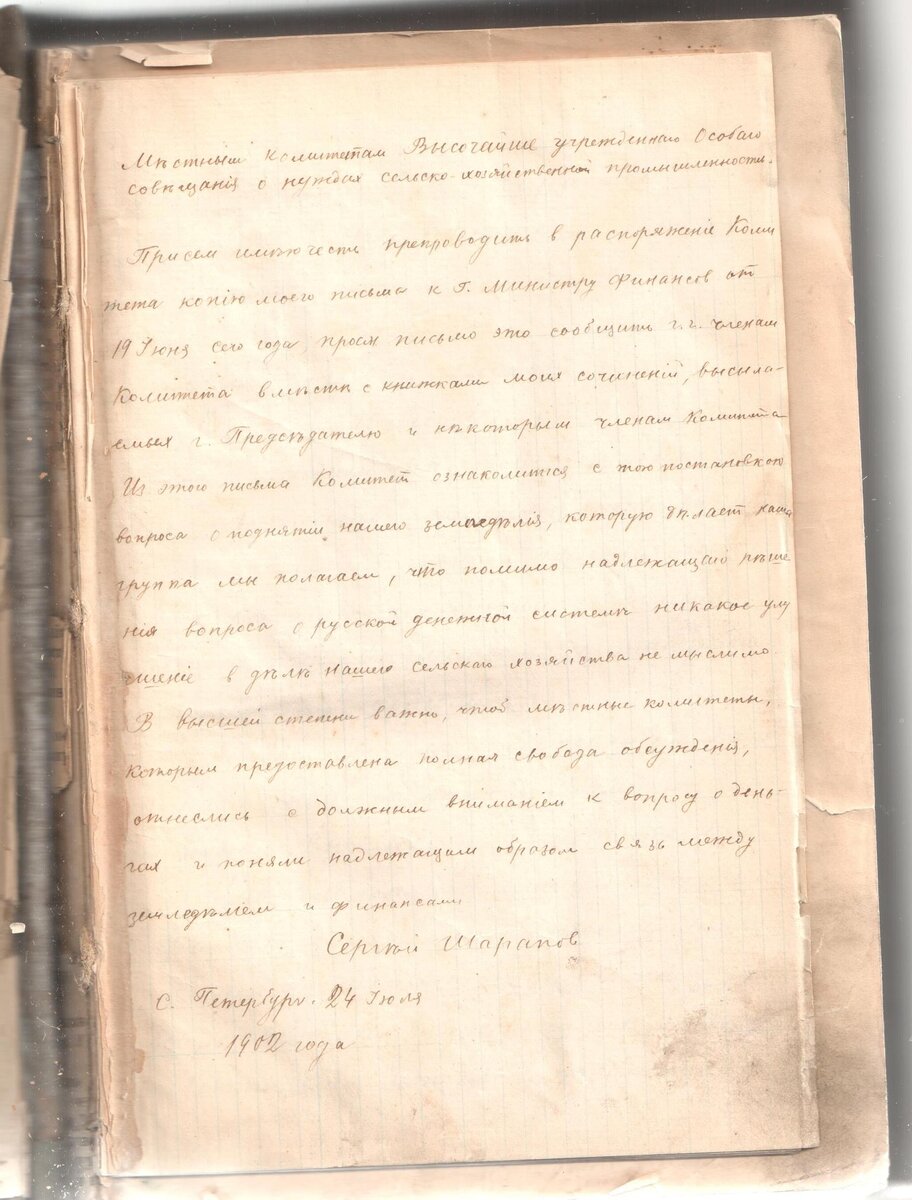 Мѣстным комитетам Высочайше учрежденнаго Особаго
совѣщанія о нуждах сельско-хозяйственной промышленности.
При сем имѣю честь препроводить в распоряженіе Коми
тета копію моего письма к Г. Министру Финансов от
19 Іюня сего года, прося письмо это сообщить г.г. членам
Комитета вмѣстѣ с книжками моих сочинений, высыла-
емых г. Предсѣдателю и нѣкоторым членам Комитета
Из этого письма Комитет ознакомится с тою постановкою
вопроса о поднятіи нашего земледѣлія, которую дѣлает наша
группа мы полагаем, что помимо надлежащаго рѣше
нія вопроса о русской денежной системѣ никакое улу
чшеніе в дѣлѣ нашего сельскаго хозяйства не мыслимо.
В высшей степени важно, чтоб мѣстные комитеты,
которым предоставлена полная свобода обсужденія,
отнеслись с должным вниманіем к вопросу о день-
гах и поняли надлежащим образом связь между
земледѣліем и финансами
Сергѣй Шарапов
С. Петербург. 24 Іюля
1902 года